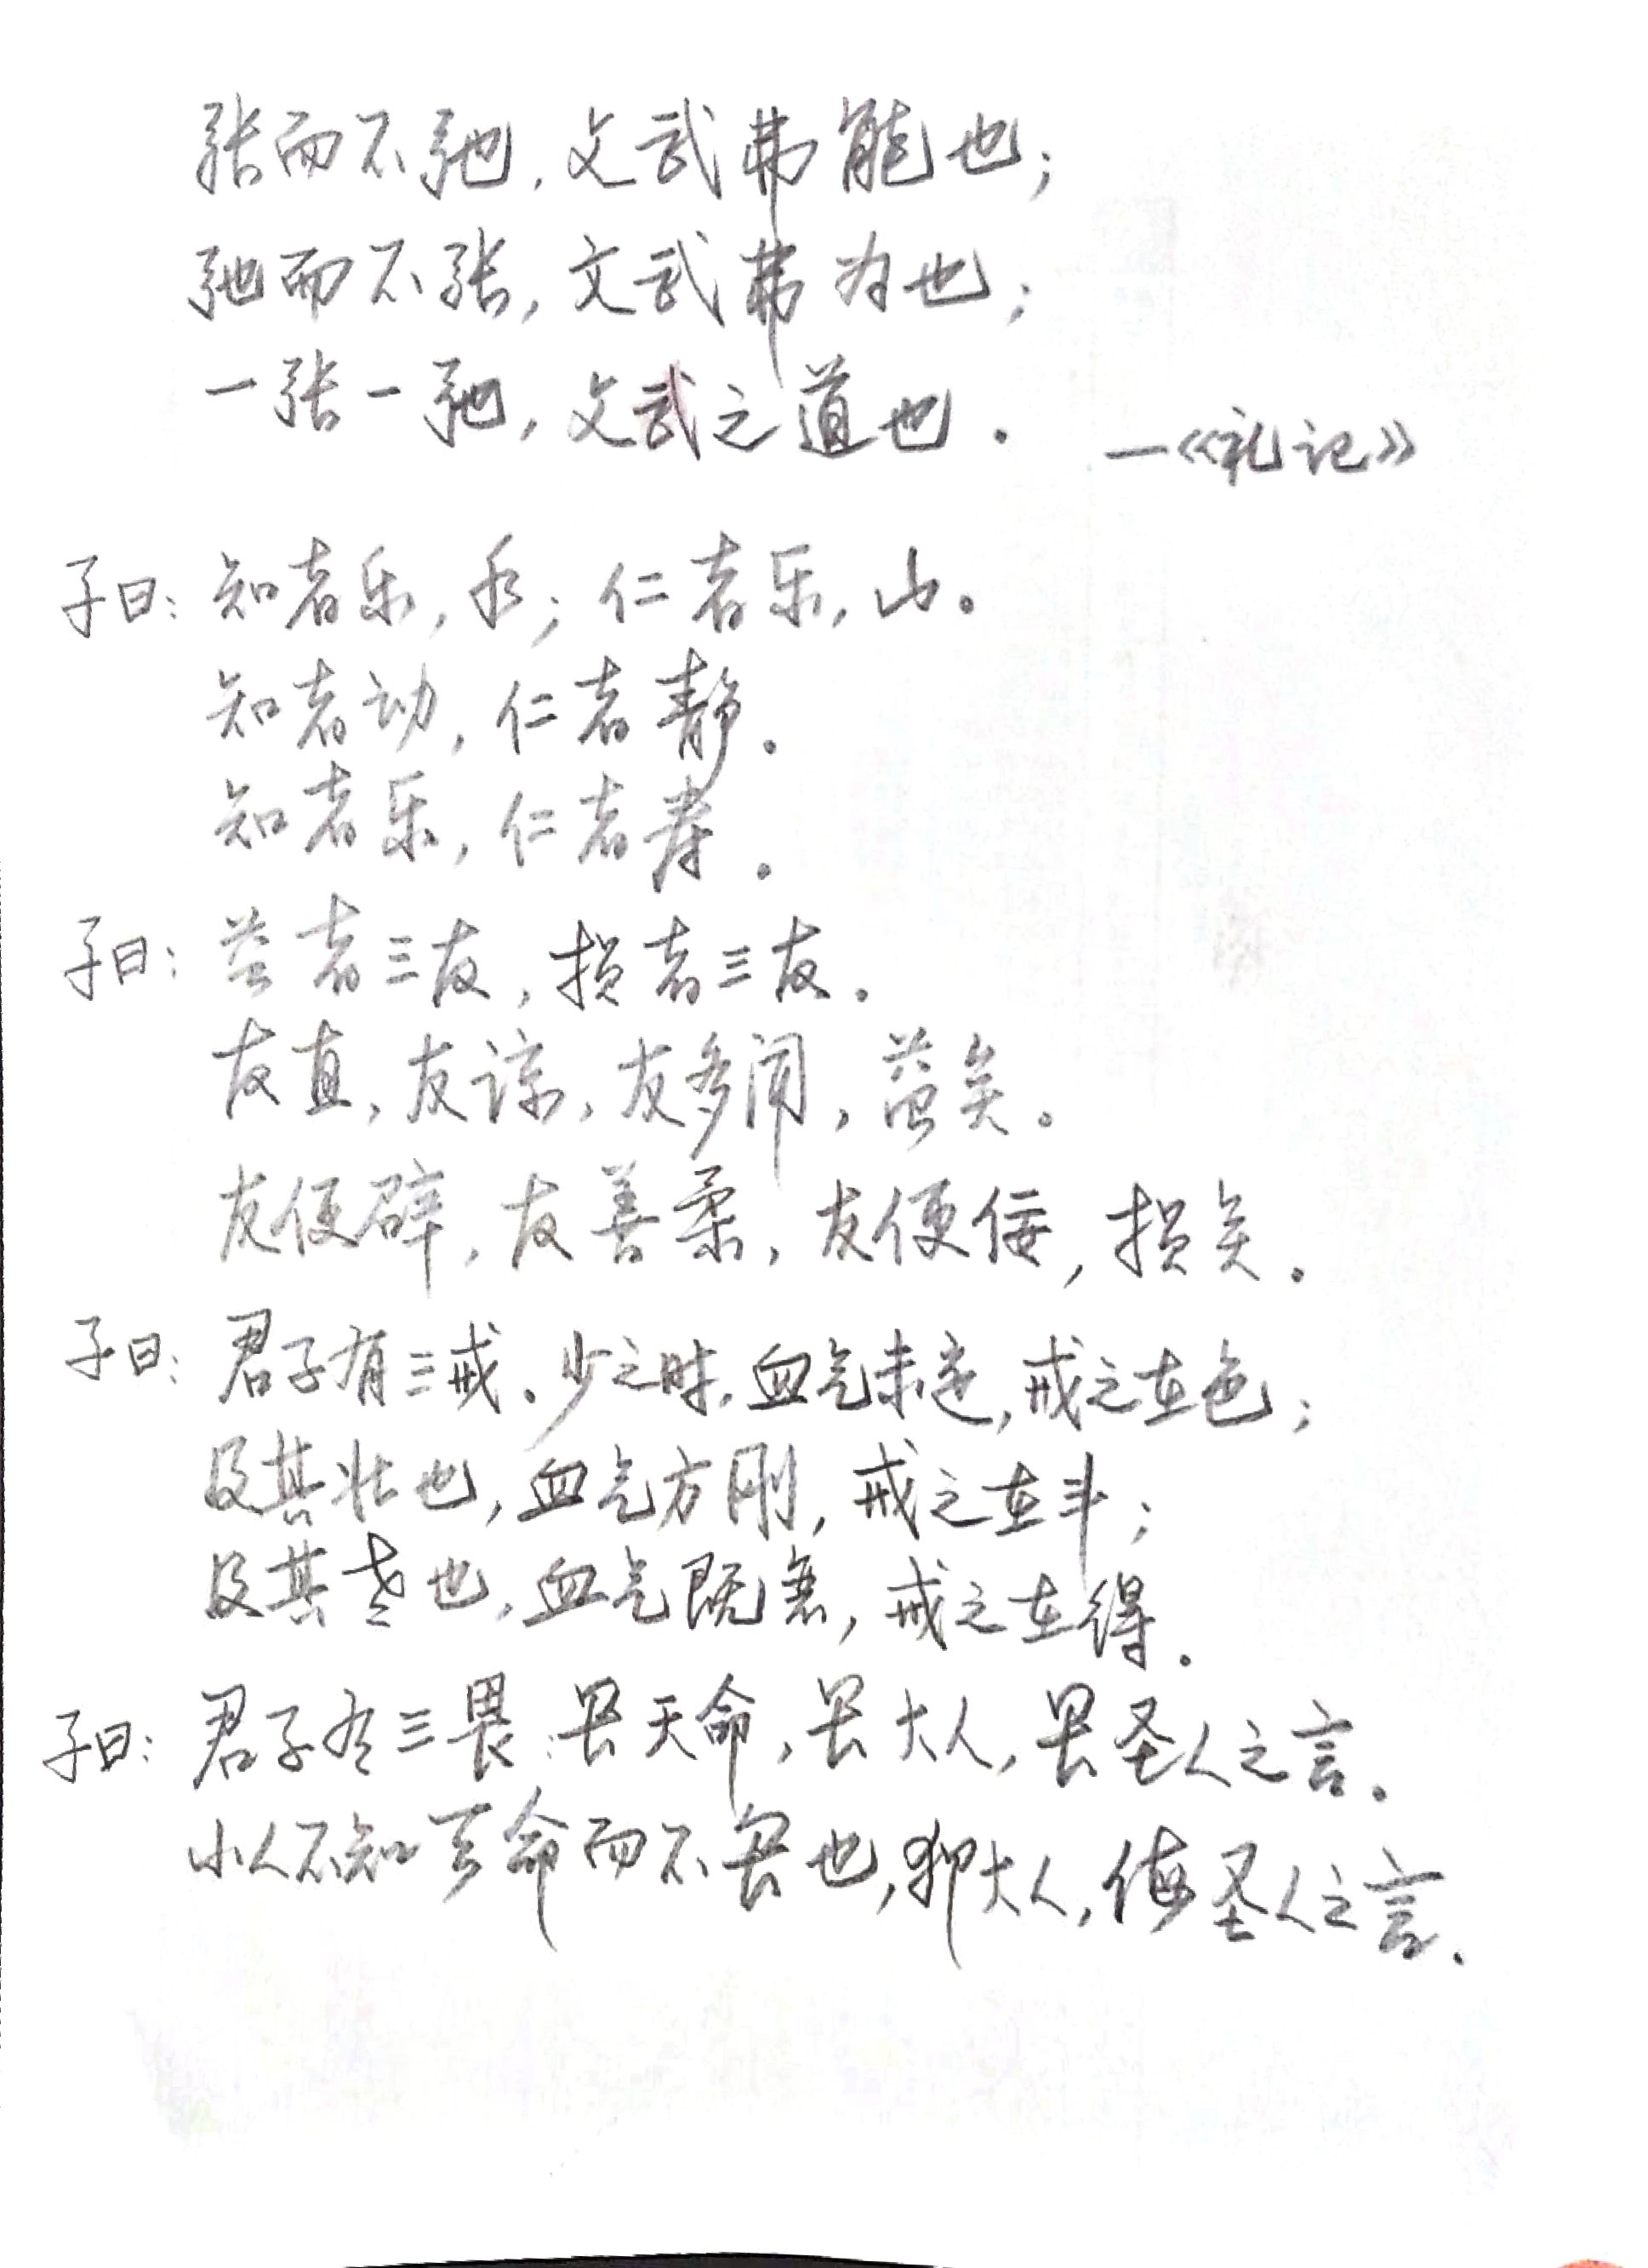 张而不弛，文武弗能也；
弛而不张，文武弗为也；
一张一弛，文武之道也。 —《礼记》
子曰：知者乐，水；仁者乐，山。
知者动，仁者静。
知者乐，仁者寿。
子曰：益者三友，损者三友。
友直，友谅，友多闻，益矣。
友便辟，友善柔，友便佞，损矣。
子曰：君子有三戒。少之时，血气未定，戒之在色；
及其壮也，血气方刚，戒之在斗；
及其老也，血气既衰，戒之在得。
子曰：君子有三畏：畏天命，畏大人，畏圣人之言。
小人不知天命而不畏也，狎大人，侮圣人之言。